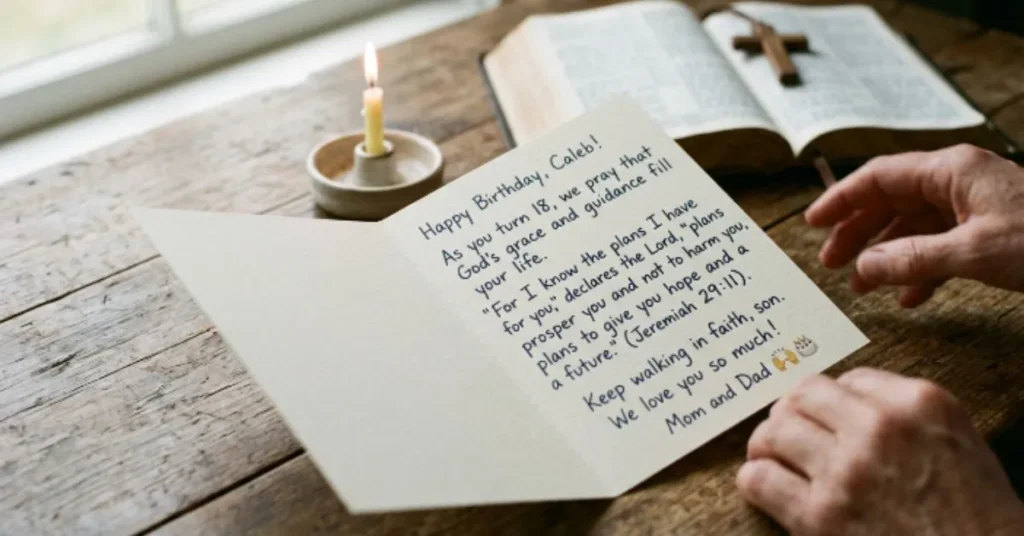 Happy Birthday, Caleb!
As you turn 18, we pray that
God's grace and guidance fill
your life.
"For I know the plans I have
for you," declares the Lord, "plans
prosper you and not to harm you,
plans to give you hope and a
a future." (Jeremiah 29:11).
Keep walking in faith, son.
We love you so much!
Mom and Dad 🙌🎂